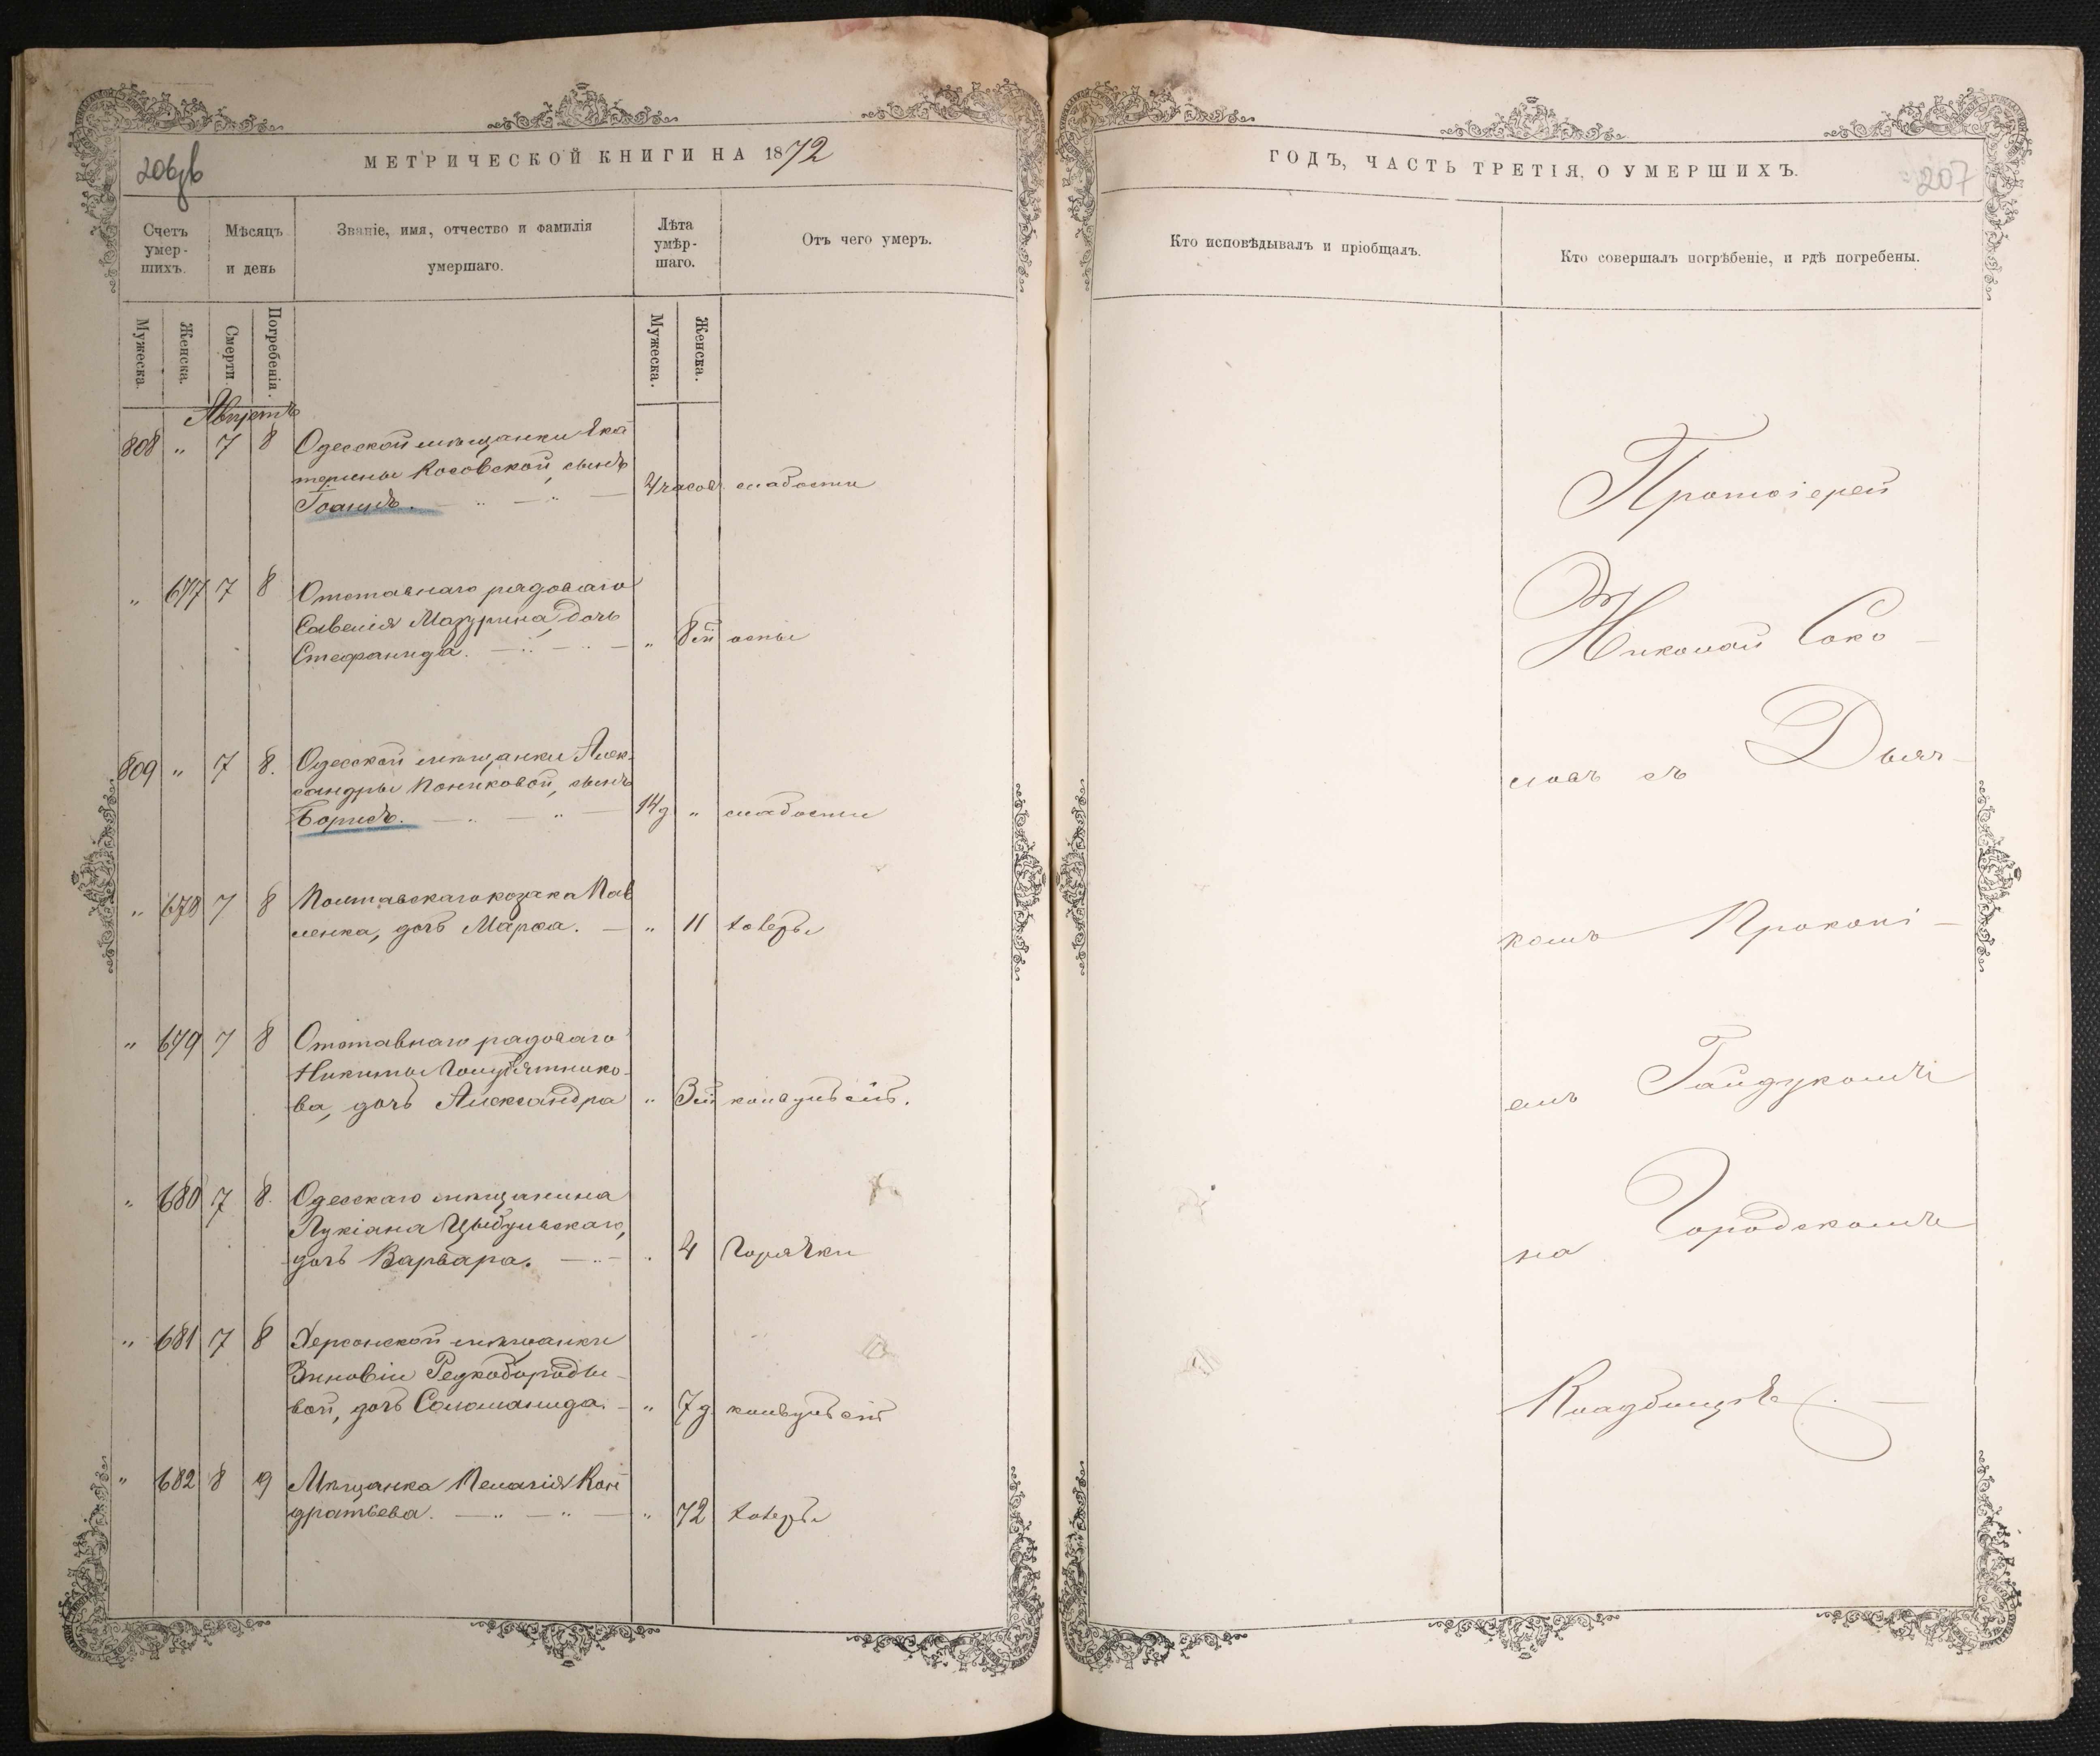 206зв
МЕТРИЧЕСКОЙ КНИГИ НА 1872
Счетъ умер-шихъ.
Мѣсяцъ и день
Званіе, имя, отчество и фамилія умершаго.
Лѣта умѣр-шаго.
Отъ чего умеръ.
Мужеска.
Женска.
Смерти.
Погребенія.
Мужеска.
Женска.
Августъ
808 " 7 8 Одесской мѣщанки Ека
терины Косовской, сынъ
Іоаннъ. 4 часов. слабости
" 677 7 8 Отставнаго рядоваго
Савелія Мазурина, дочь
Стефанида. " 8 м оспы
809 " 7 8. Одесской мѣщанки Алек-
сандры Пониковой, сынъ
Борисъ. 14 д " слабости
" 678 7 8 Полтавскаго козака Пав
ленка, дочь Марѳа. " 11 холеры
" 679 7 8 Отставнаго рядоваго
Никиты Голубятнико-
ва, дочь Александра " 3 м конвульсій.
" 680 7 8. Одесскаго мѣщанина
Лукіана Цыбульскаго,
дочь Варвара. " 4 горячки
" 681 7 8 Херсонской мѣщанки
Зиновіи Редкобороды-
вой, дочь Соломанида. " 7 д. конвульсій
" 682 8 9 Мѣщанка Пелагія Кон
дратьева. " 72 холеры
ГОДЪ, ЧАСТЬ ТРЕТІЯ, О УМЕРШИХЪ.
207
Кто исповѣдывалъ и пріобщалъ.
Кто совершалъ погрѣбеніе, и гдѣ погребены.
Протоіерей
Николай Соко-
ловъ съ Дьяч-
комъ Прокопі-
емъ Гайдукомъ
на Городскомъ
Кладбищѣ.